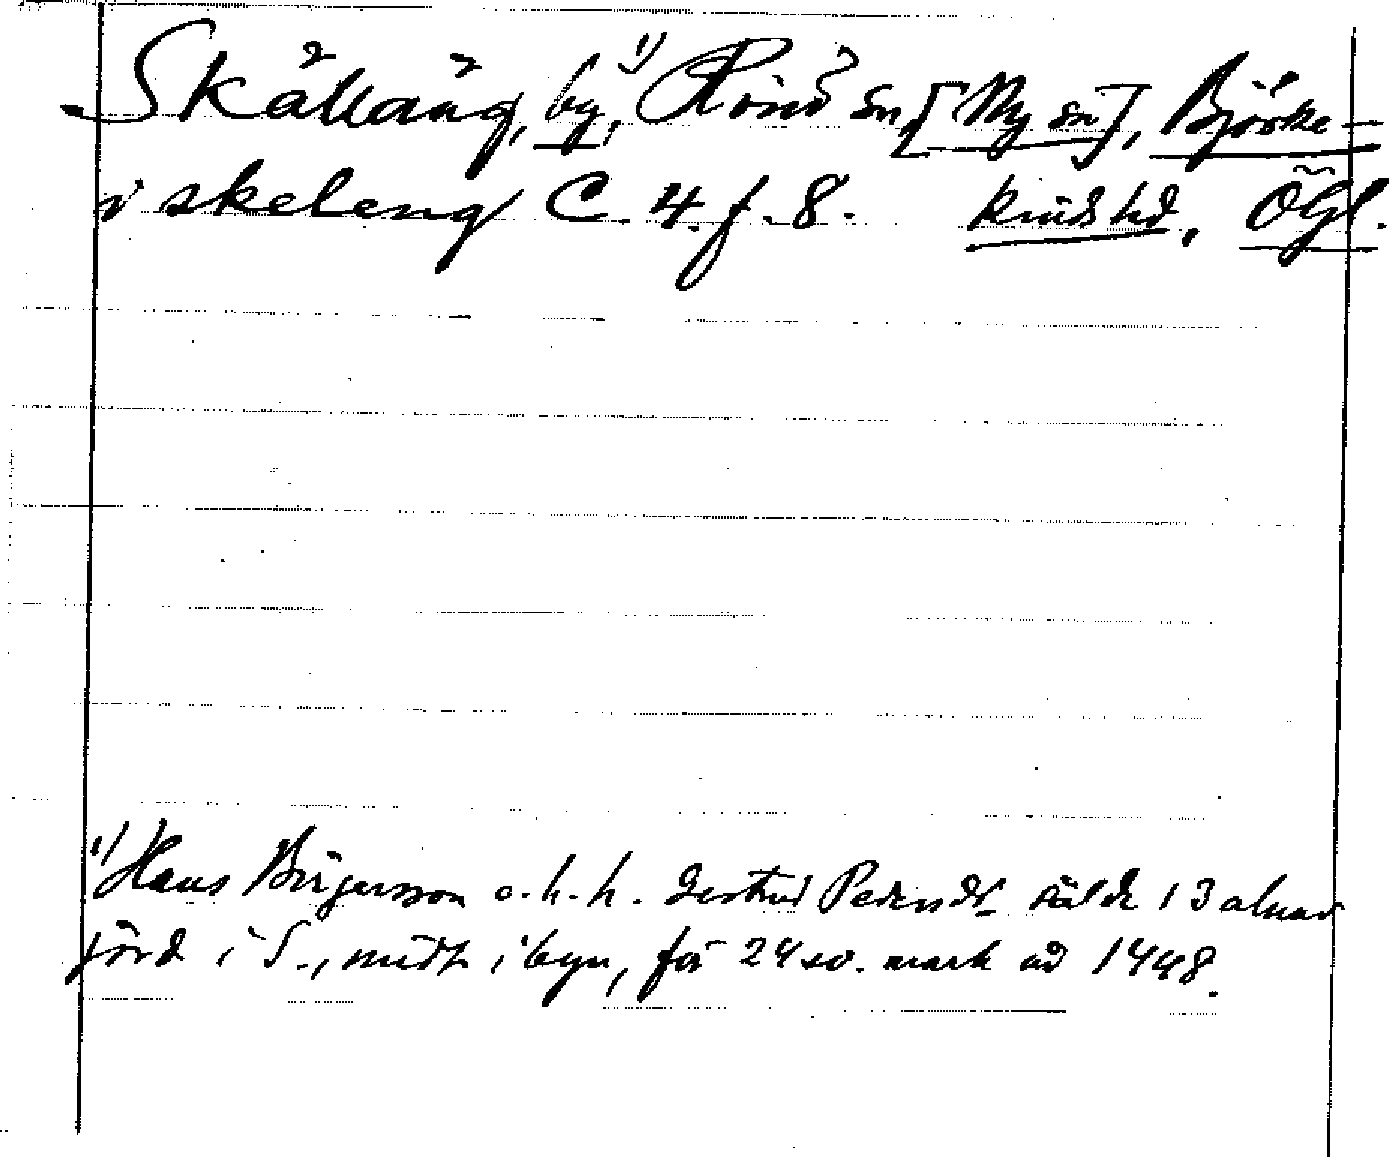 Skälläng, by,¹⁾ Rönö sn, [Ny sn], Björke-
i skeleng C. 4. f. 8. kinds hd, ÖGl.
¹⁾ Hans Birgersson o. h. h. Gertrud Pedersdt. sålde 13 alnar
jord i S., midt i byn, för 24 sv. mark ad 1448.